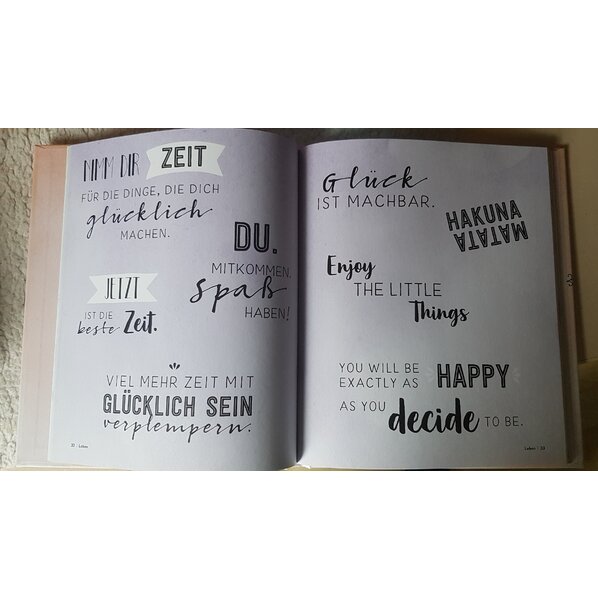 NIMM DIR ZEIT
FÜR DIE DINGE, DIE DICH
glücklich
MACHEN.
DU.
MITKOMMEN.
Spaß
HABEN!
JETZT
IST DIE
beste Zeit.
VIEL MEHR ZEIT MIT
GLÜCKLICH SEIN
verplempern.
32 | Leben
Glück
IST MACHBAR.
HAKUNA
MATATA
Enjoy
THE LITTLE
Things
YOU WILL BE
EXACTLY AS HAPPY
AS YOU decide TO BE.
Leben | 33